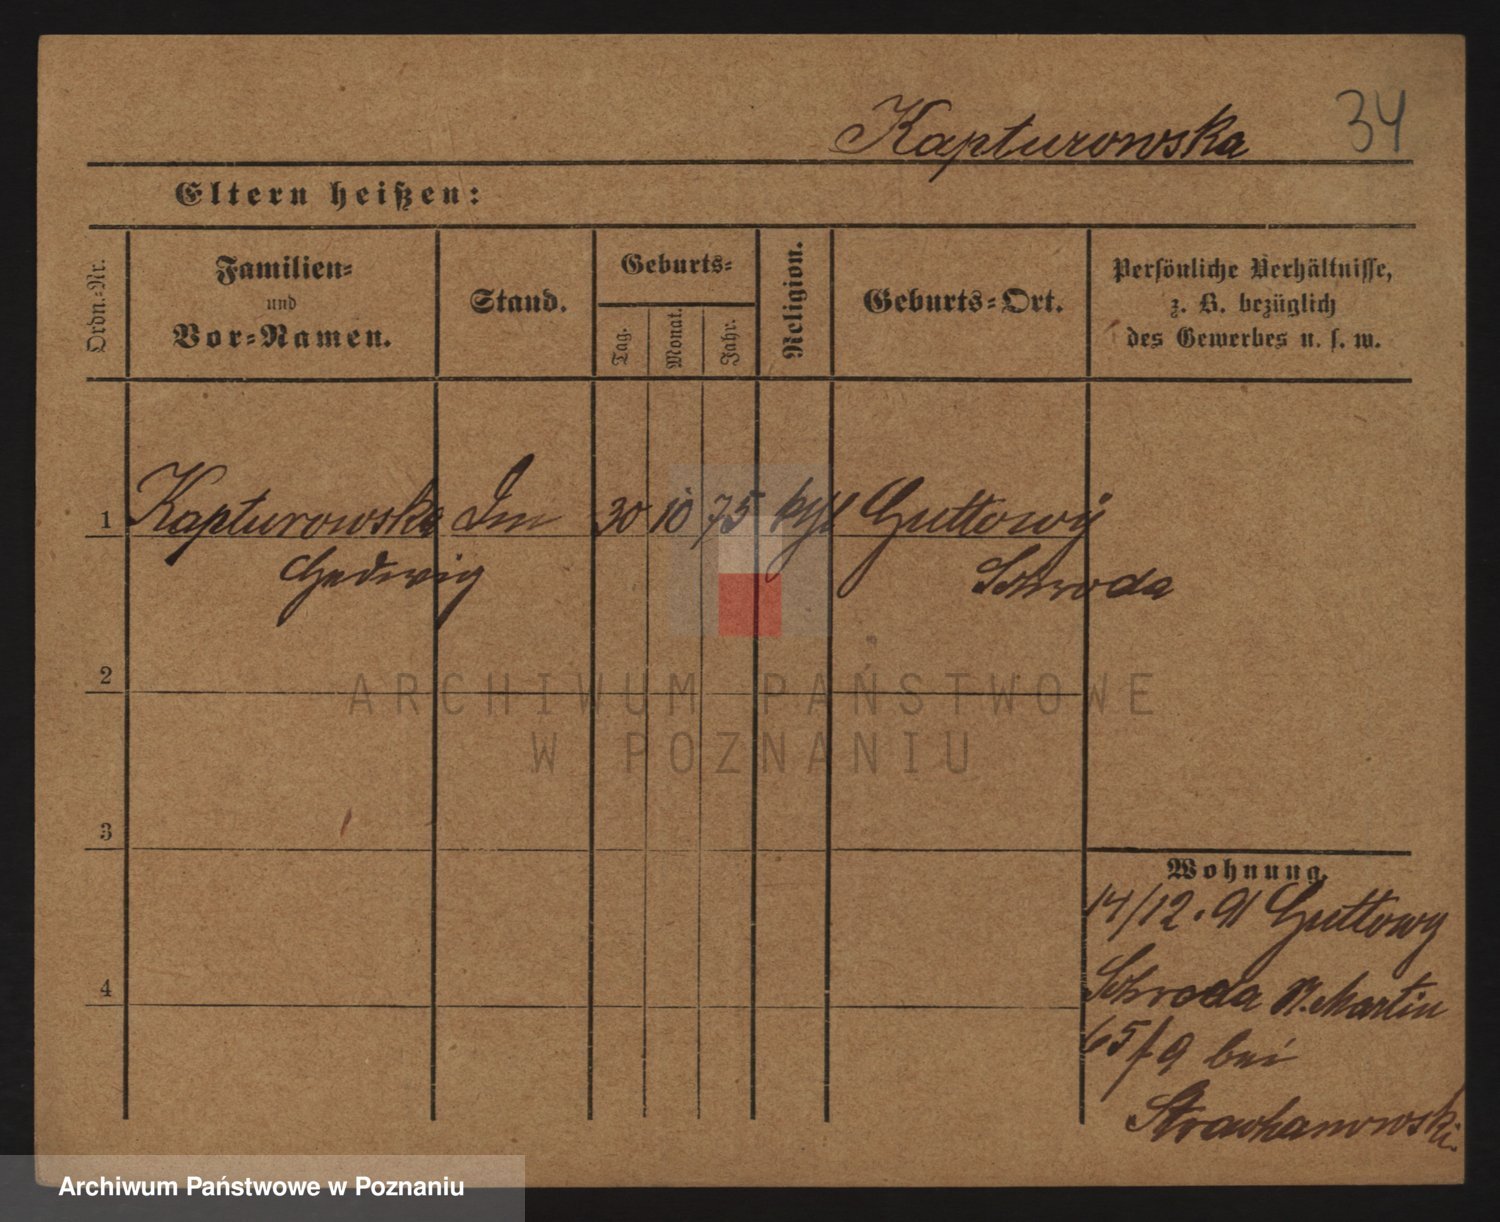 Kapturowska 34
Eltern heißen:
Ordn.-Nr.
Familien-
und
Vor-Namen.
Stand.
Geburts-
Tag.
Monat.
Jahr.
Religion.
Geburts-Ort.
Persönliche Verhältnisse,
z. B. bezüglich
des Gewerbes u. s. w.
1 Kapturowska 30 10 75 Guttowy
Hedwig Schroda
2
ARCHIWUM PAŃSTWOWE
W POZNANIU
3
Wohnung.
14/12. 91 Guttowy
4
Schroda St. Martin
65/9 bei
Archiwum Państwowe w Poznaniu